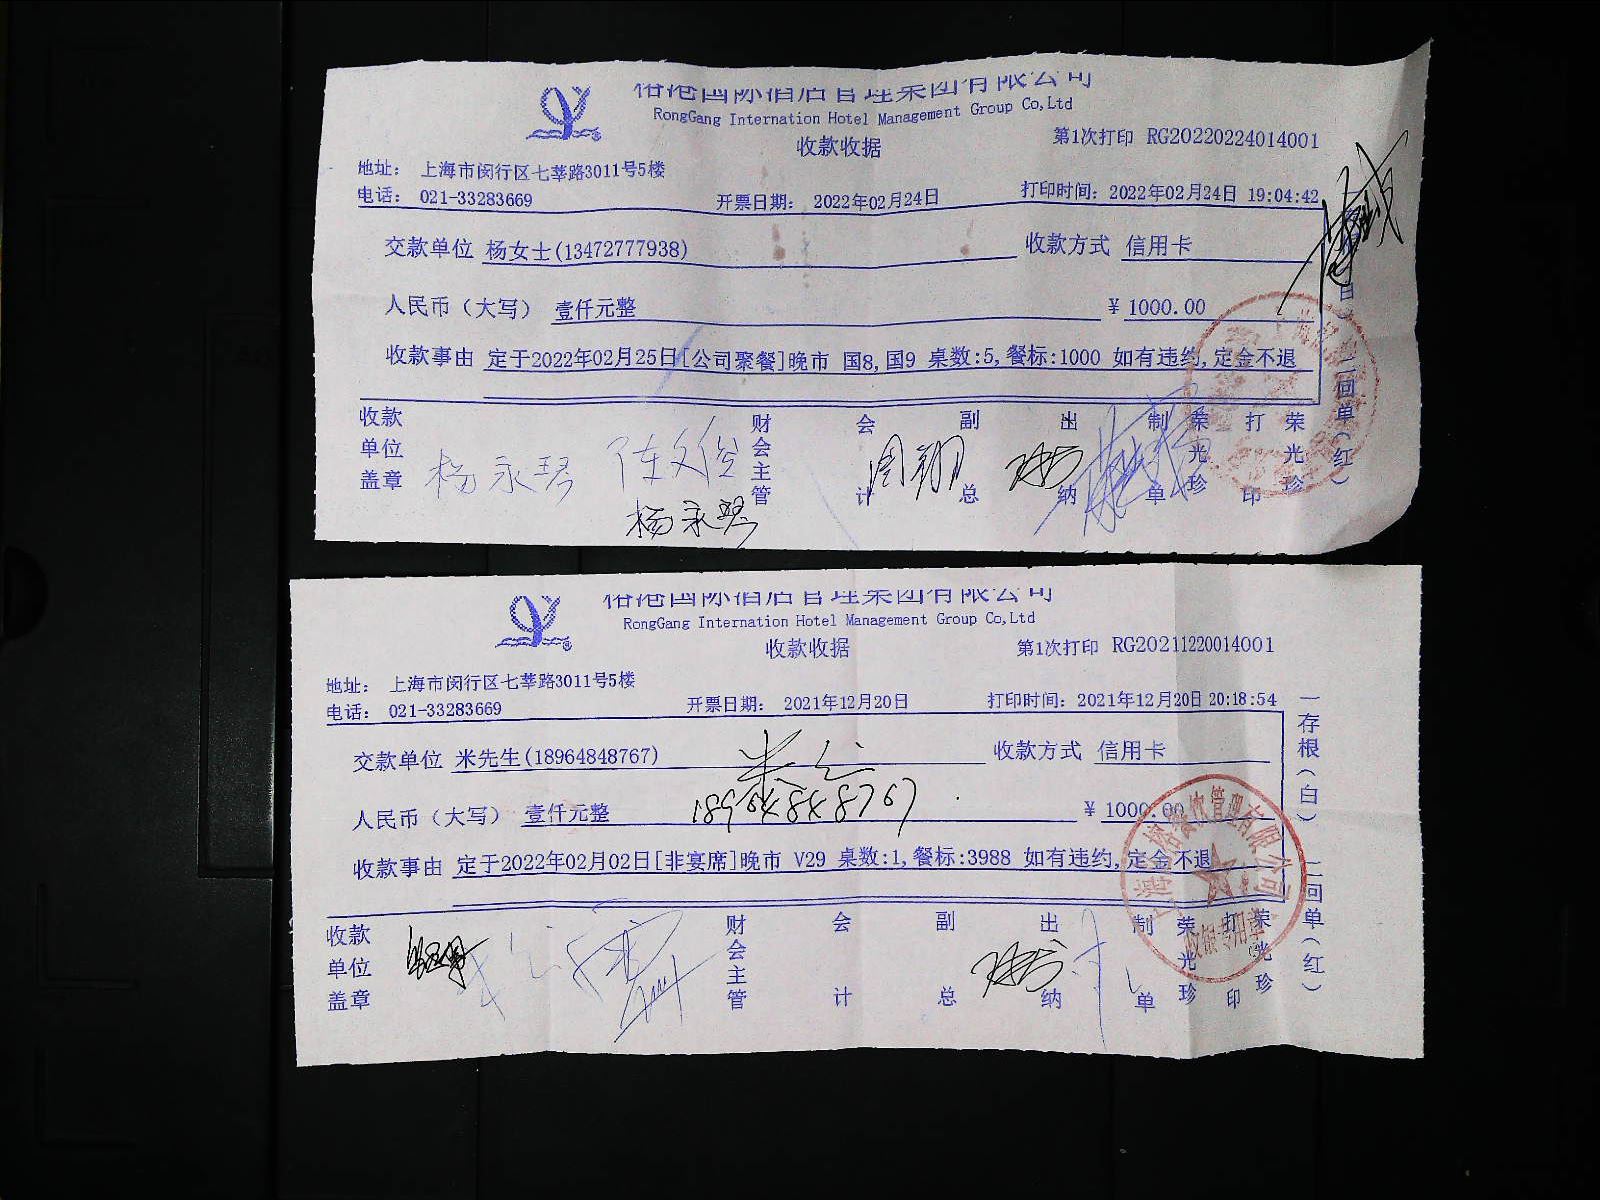 裕港国际酒店管理集团有限公司
RongGang Internation Hotel Management Group Co,Ltd
收款收据
第1次打印 RG20220224014001
地址： 上海市闵行区七莘路3011号5楼
电话： 021-33283669 开票日期： 2022年02月24日 打印时间：2022年02月24日 19:04:42
交款单位 杨女士(13472777938) 收款方式 信用卡
人民币（大写） 壹仟元整 ￥1000.00
收款事由 定于2022年02月25日[公司聚餐]晚市 国8,国9 桌数:5,餐标:1000 如有违约,定金不退
二回单(红)
收款单位盖章 杨永琴 财会主管 会计 周翔 副总 出纳 制单 荣光珍 打印 荣光珍
杨永琴
裕港国际酒店管理集团有限公司
RongGang Internation Hotel Management Group Co,Ltd
收款收据
第1次打印 RG20211220014001
地址： 上海市闵行区七莘路3011号5楼
电话： 021-33283669 开票日期： 2021年12月20日 打印时间：2021年12月20日 20:18:54
交款单位 米先生(18964848767) 收款方式 信用卡
18964848767
人民币（大写） 壹仟元整 ￥1000.00
收款事由 定于2022年02月02日[非宴席]晚市 V29 桌数:1,餐标:3988 如有违约,定金不退
一存根(白) 二回单(红)
收款单位盖章 财会主管 会计 副总 出纳 制单 荣光珍 打印 荣光珍